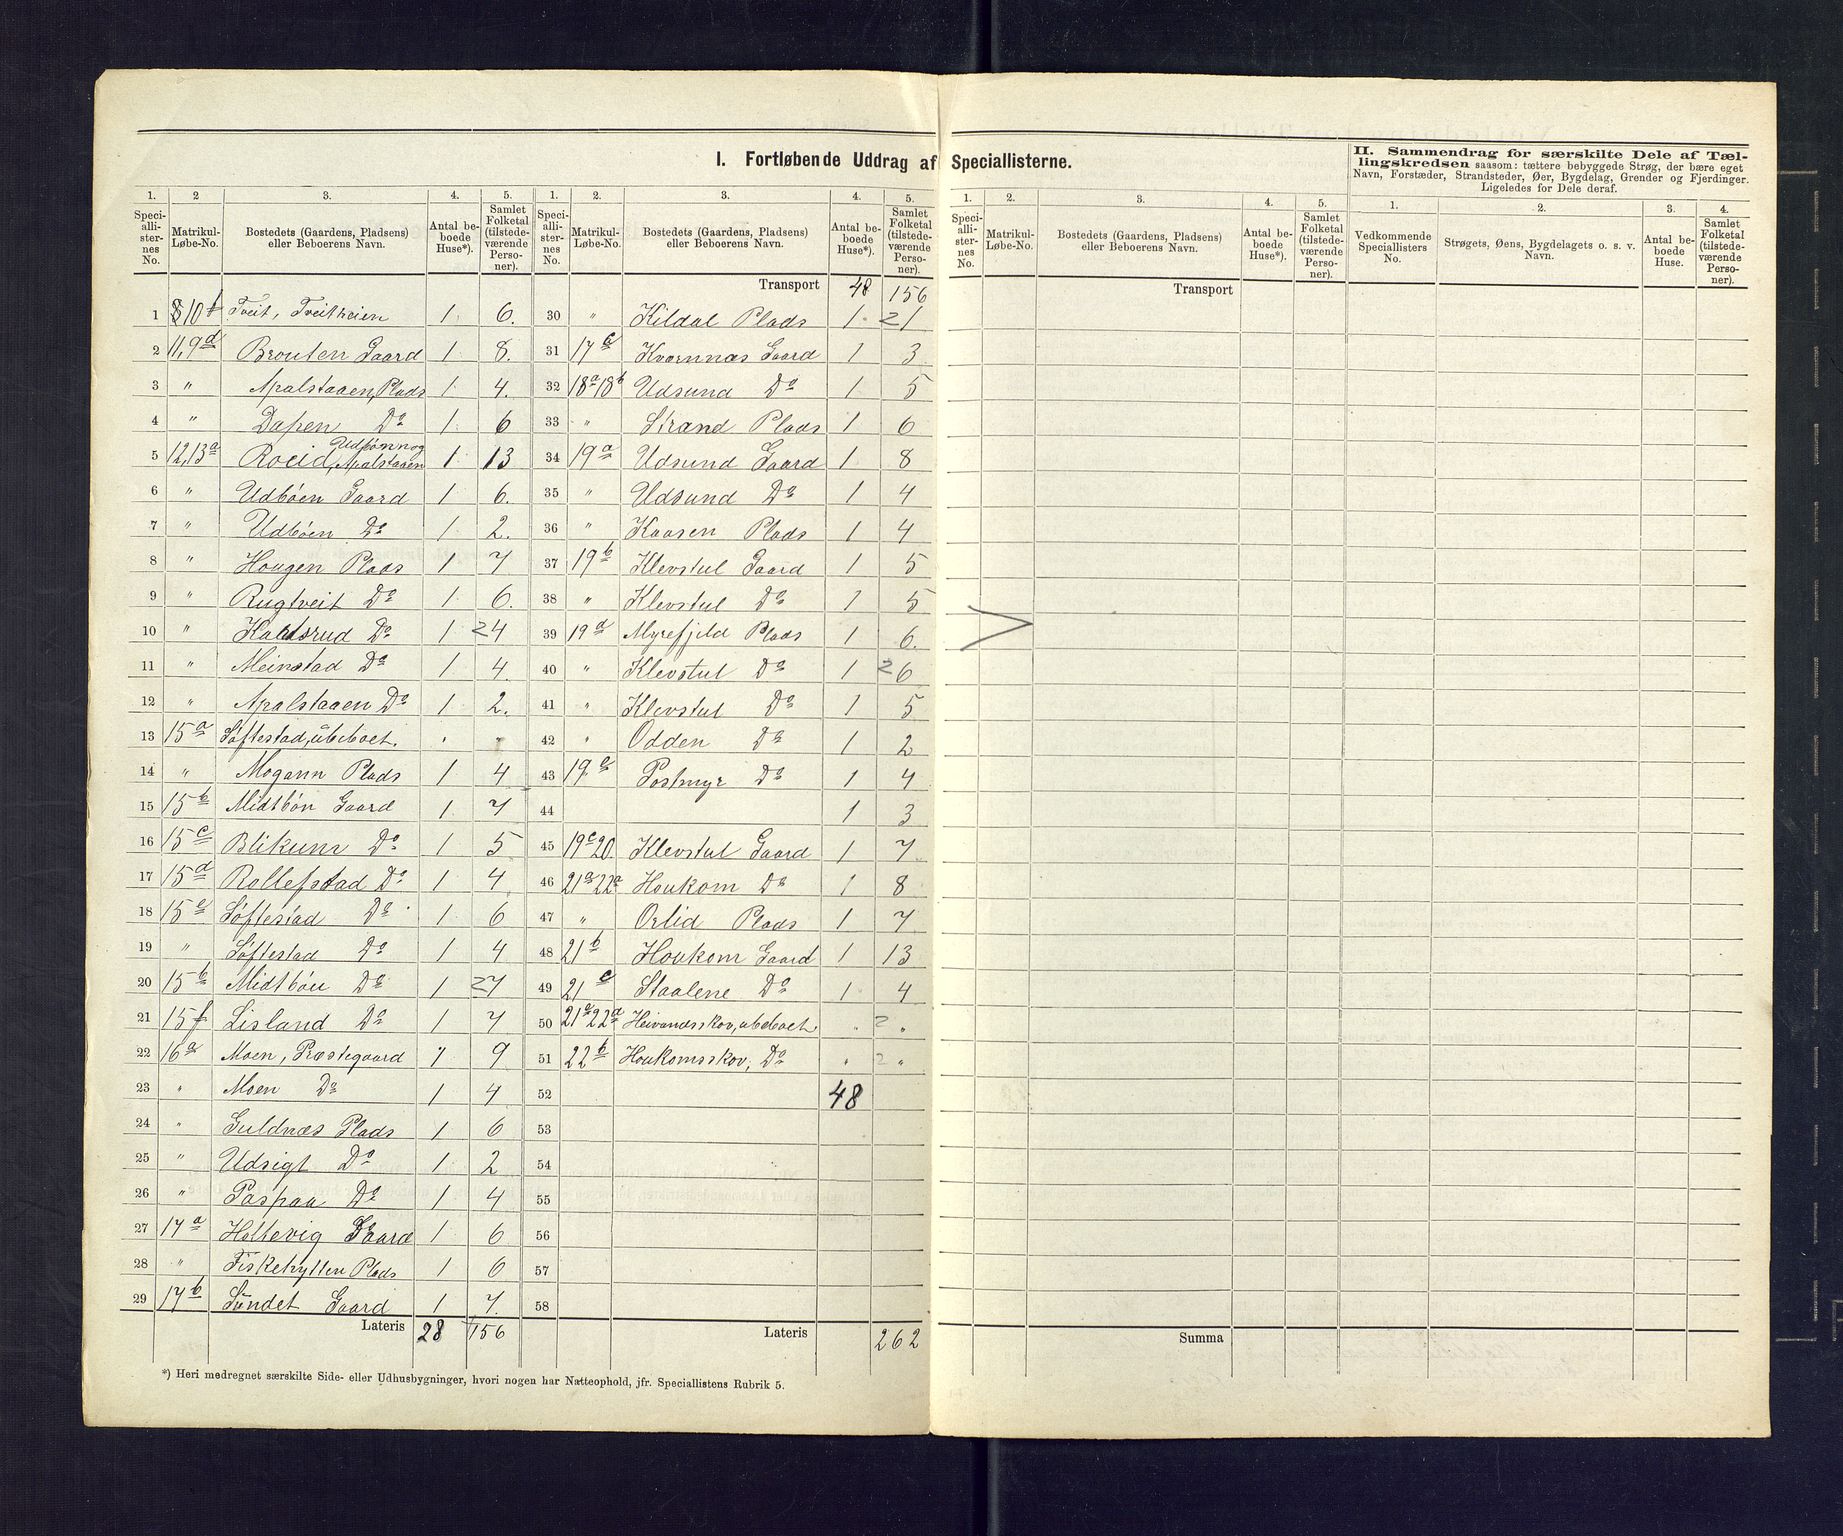 I. Fortløbende Uddrag af Speciallisterne.
II. Sammendrag for særskilte Dele af Tæl-
lingskredsen saasom: tættere bebyggede Strøg, der bære eget
Navn, Forstæder, Strandsteder, Øer, Bygdelag, Grender og Fjerdinger.
Ligeledes for Dele deraf.
1. 2 3. 4. 5. 1. 2. 3. 4. 5. 1. 2. 3. 4. 5. 1. 2. 3. 4.
Speciallisternes No. Matrikul-Løbe-No. Bostedets (Gaardens, Pladsens) eller Beboerens Navn. Antal beboede Huse*). Samlet Folketal (tilstedeværende Personer).
Speciallisternes No. Matrikul-Løbe-No. Bostedets (Gaardens, Pladsens) eller Beboerens Navn. Antal beboede Huse*). Samlet Folketal (tilstedeværende Personer).
Speciallisternes No. Matrikul-Løbe-No. Bostedets (Gaardens, Pladsens) eller Beboerens Navn. Antal beboede Huse*). Samlet Folketal (tilstedeværende Personer).
Vedkommende Speciallisters No. Strøgets, Øens, Bygdelagets o. s. v. Navn. Antal beboede Huse. Samlet Folketal (tilstedeværende Personer).
1 Tveit, Tveitheien 1 6.
2 11, 9d Brouten Gaard 1 8.
3 " Apalstaaen, Plads 1 4.
4 " Dapen Do 1 6
5 12, 13a Roeid, Udbøen og Apalstaaen 1 13
6 " Udbøen Gaard 1 6.
7 " Udbøen Do 1 2.
8 " Hougen Plads 1 7
9 " Rugtveit Do 1 6.
10 " Do 1 24
11 " Meinstad Do 1 4.
12 " Apalstaaen Do 1 2.
13 15a Søftestad, ubeboet. " "
14 " Mogann Plads 1 4
15 15b Midtbøn Gaard 1 7
16 15c Blikum Do 1 5
17 15d Rollefstad Do 1 4
18 15e Søftestad Do 1 6
19 " Søftestad Do 1 4
20 15b Midtbøn Do 1 27
21 15f Lisland Do 1 7
22 16a Moen, Præstegaard 9
23 " Moen Do 1 4
24 " Guldnæs Plads 1 6
25 " Udsigt Do 1 2
26 " Paspaa Do 1 4
27 17a Holtevig Gaard 1 6
28 " Fiskehytten Plads 1 6
29 17b Sundet Gaard 1 7.
Lateris 28 156
Transport 48 156
30 " Kildal Plads 1 21
31 17c Kvernnæs Gaard 1 3
32 18a 18b Udsund Do 1 5
33 " Strand Plads 1 6
34 19a Udsund Gaard 1 8
35 " Udsund Do 1 4
36 " Kaasen Plads 1 4
37 19b Klevstul Gaard 1 5
38 " Klevstul Do 1 5
39 19d Myrefjeld Plads 1 6.
40 " Klevstul Do 1 26
41 " Klevstul Do 1 5
42 " Odden Do 1 2
43 19e Postmyr Do 1 4
44 1 3
45 19c 20. Klevstul Gaard 1 7
46 21a 22a Houkom Do 1 8
47 " Orlid Plads 1 7
48 21b Houkom Gaard 1 13
49 21c Staalene Do 1 4
50 Heivandsskov, ubeboet " 2 "
51 22b Houkomsskov, Do " 2 "
52 48
53
54
55
56
57
58
Lateris 262
Transport
Summa
*) Heri medregnet særskilte Side- eller Udhusbygninger, hvori nogen har Natteophold, jfr. Speciallistens Rubrik 5.